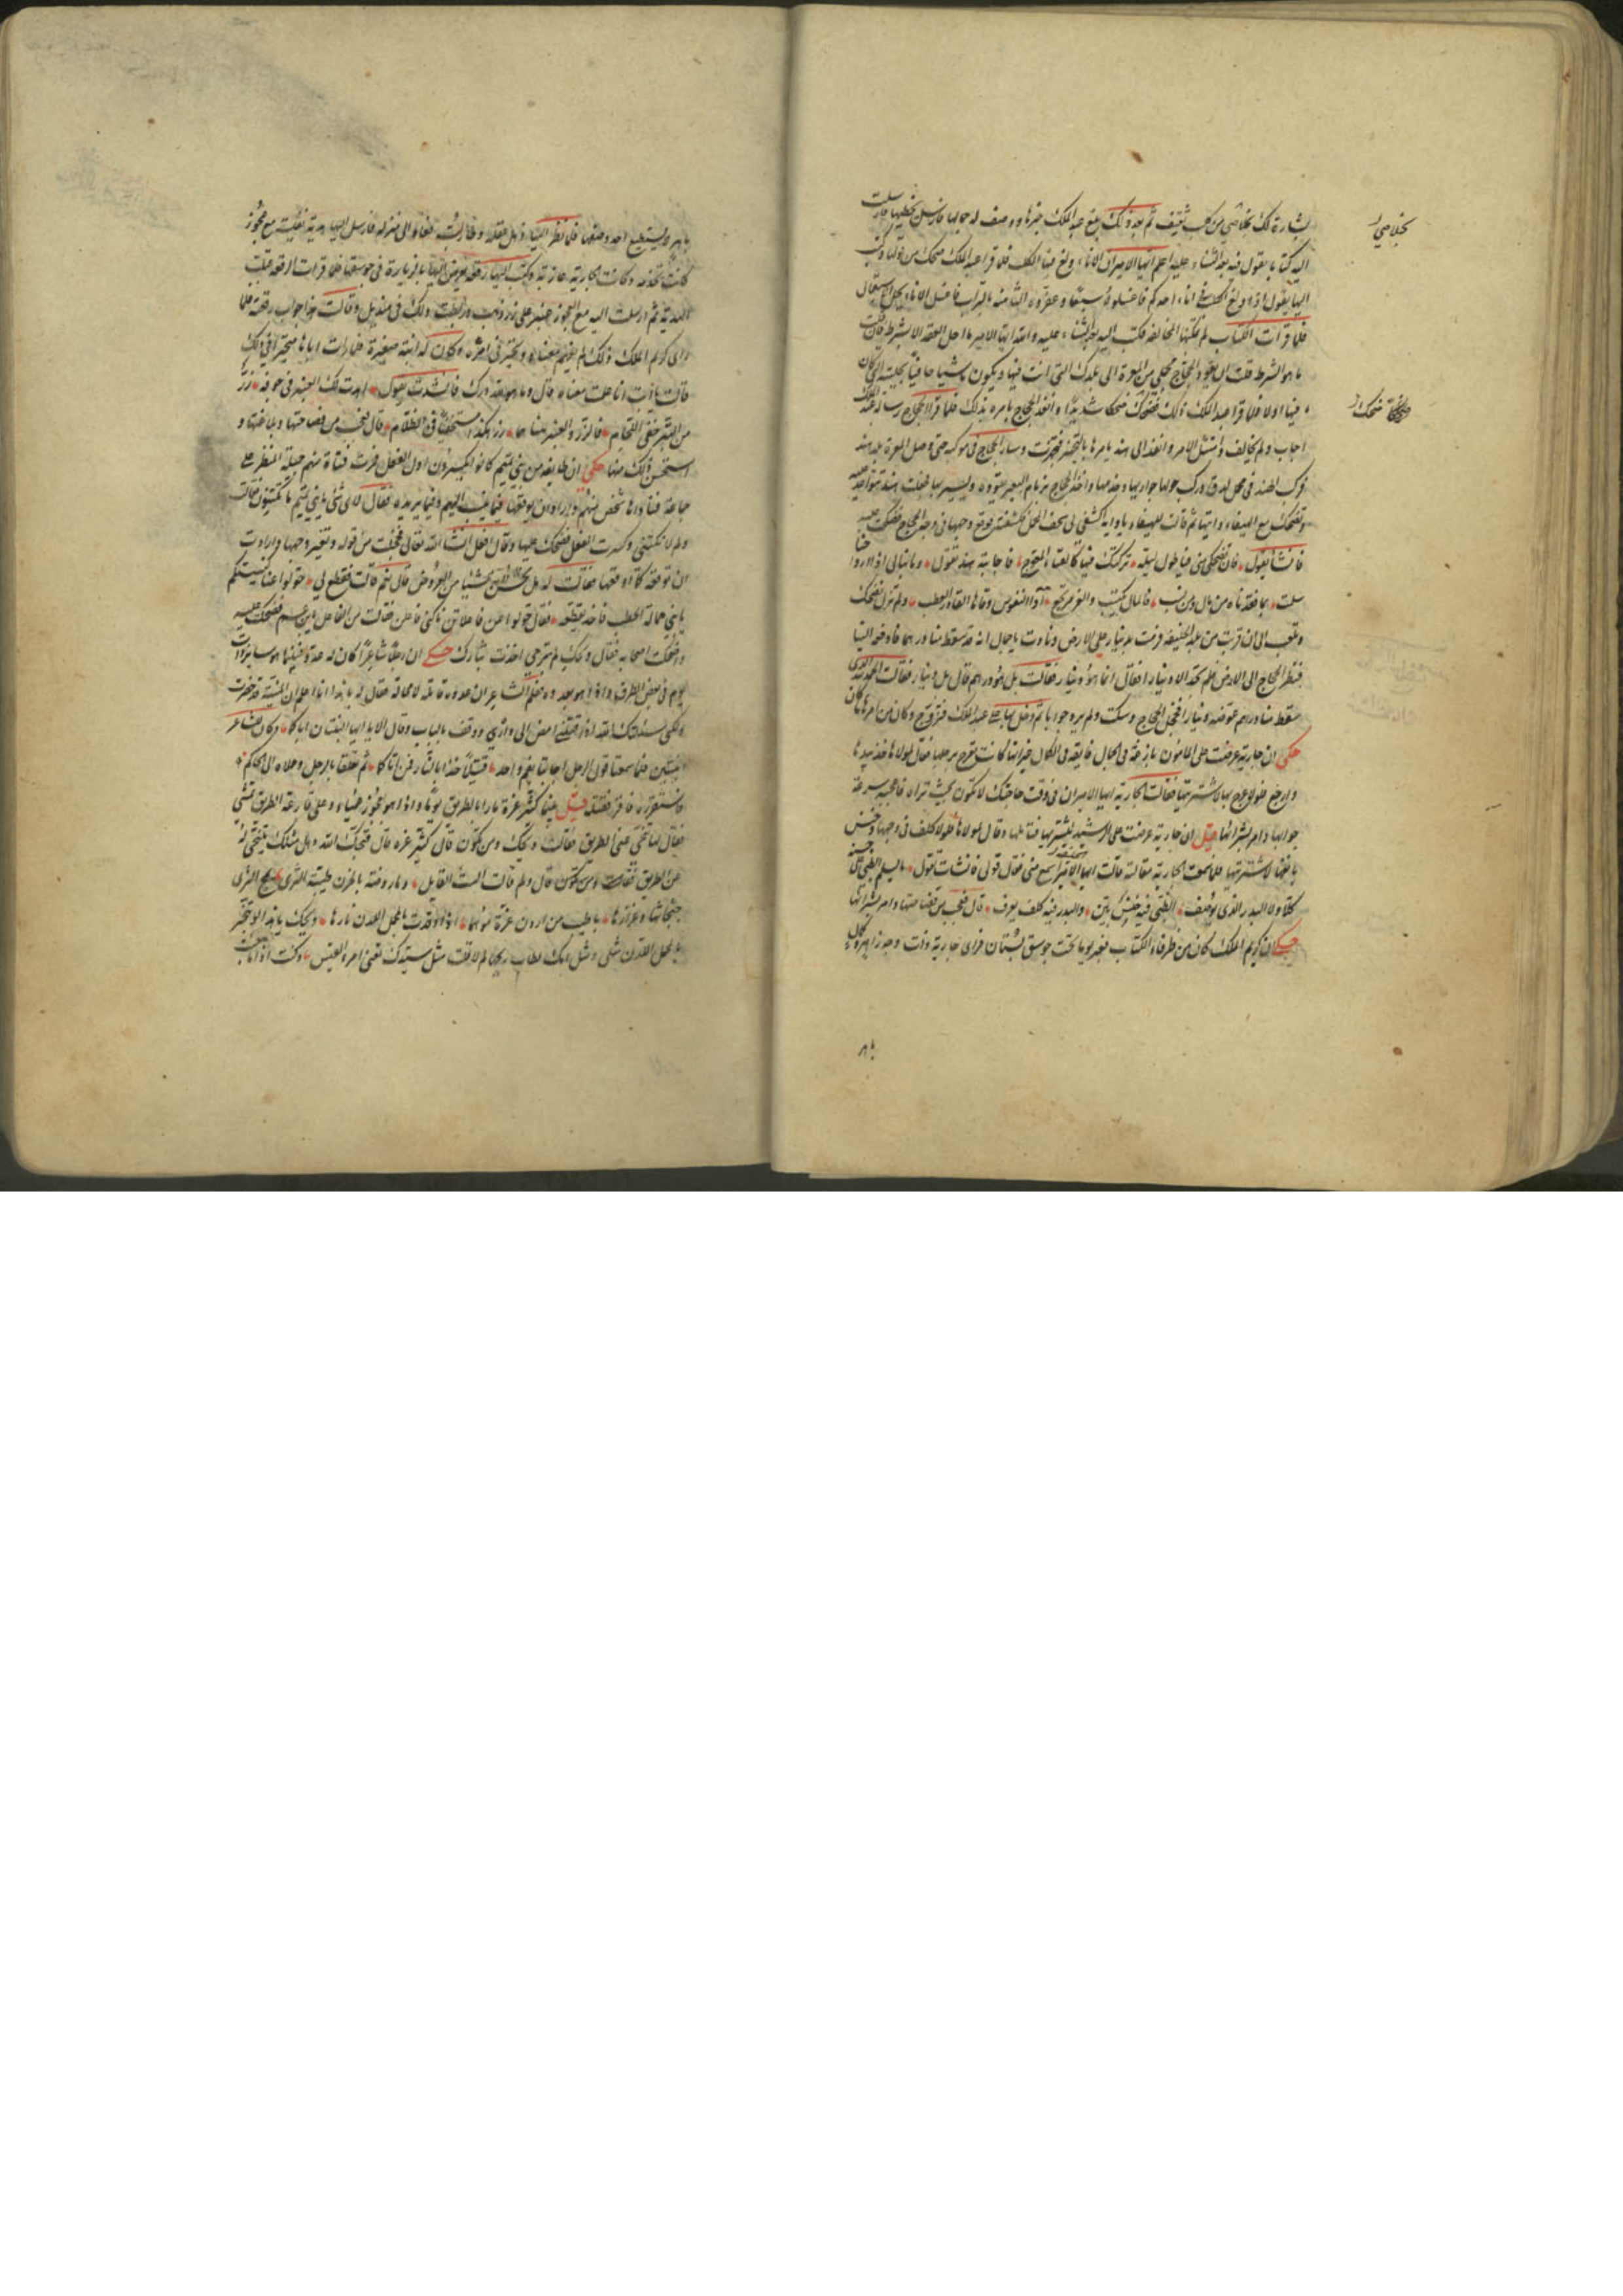 بشارة لك بخلاصي من كلب ثقيف ثم بعد ذلك بلغ عبد الملك خبرها ووصف له جمالها فارسل يخطبها فارسلت
اليه كتابا يقول فيه بعد الثناء عليه اعلم ايها الامير ان الاناء ولغ فيه الكلب فلما قرا عبد الملك ضحك من قولها وكتب
اليها يقول اذا ولغ الكلب في اناء احدكم فاغسلوه سبعا وعفروه الثامنة بالتراب فاغسلي الاناء يحل الاستعمال
فلما قرات الكتاب لم يمكنها المخالفة فكتبت اليه بعد الثناء عليه والله ايها الامير ما احل العقد الا بشرط فان قلت
ما هو الشرط قلت ان يقود الحجاج محملي من المعرة الى بلدك التي انت فيها ويكون ماشيا حافيا بحليته التي كان
فيها اولا فلما قرا عبد الملك ذلك ضحك ضحكا شديدا وانفذ الحجاج يامره بذلك فلما قرا الحجاج رسالة عبد الملك
اجاب ولم يخالف وامتثل الامر وانفذ الى هند يامرها بالتجهز فتجهزت وسار الحجاج في موكبه حتى وصل المعرة بلد هند
فركبت هند في محمل لها وركب حولها جواريها وخدمها واخذ الحجاج بزمام البعير يقوده ويسير بها فجعلت هند تتواغد عليه
وتضحك مع الهيفاء دايتها ثم قالت للهيفاء يا داية اكشفي لي سجف المحمل فكشفته فوقع وجهها في وجه الحجاج فضحكت عليه
فانشا يقول فان تضحكي مني فيا طول ليلة تركتك فيها كالقباء المفرج فاجابته هند تقول وما نبالي اذا ارواحنا
سلمت بما فقدناه من مال ومن نسب فالمال مكتسب والعز مرتجع اذا النفوس وقاها الله من العطب ولم تزل تضحك
وتلعب الى ان قربت من بلد الخليفة فرمت بدينار على الارض ونادت يا جمال انه قد سقط منا درهم فادفعه الينا
فنظر الحجاج الى الارض فلم يجد الا دينارا فقال انما هو دينار فقالت بل هو درهم قال بل دينار فقالت الحمد لله الذي
سقط منا درهم فعوضنا دينارا فخجل الحجاج وسكت ولم يرد جوابا ثم دخل بها على عبد الملك فتزوج بها وكان من امرها ما كان
حكي ان جارية عرضت على المامون بارعة في الجمال فايقة في الكمال غير انها كانت تعرج برجلها فقال لمولاها خذ بيدها
وارجع فلولا عرج بها لاشتريتها فقالت الجارية ايها الامير ان في وقت حاجتك لا تكون بحيث تراه فاعجبه سرعة
جوابها وامر بشرائها قيل ان جارية عرضت على الرشيد ليشتريها فتاملها وقال لمولاها لولا كلف في وجهها وخنس
بانفها لاشتريتها فلما سمعت الجارية مقالته قالت ايها الامير اسمع مني فقال قولي فانشات تقول ما سلم الظبي على حسنه
كلا ولا البدر الذي يوصف الظبي فيه خنس بين والبدر فيه كلف يعرف قال فعجب من فصاحتها وامر بشرائها
حكي ان كريم الملك كان من ظرفاء الكتاب فعبر يوما تحت جوسق ببستان فراى جارية ذات وجه زاهر وكمال
بخلاصي
ضحك
باهر لا يستطيع احد وصفها فلما نظر اليها ذهل عقله وطار لبه فعاد الى منزله فارسل اليها هدية نفيسة مع عجوز
كانت تخدمه وكانت الجارية عازبة وكتب اليها رقعة يعرض اليها بالزيارة في جوسقها فلما قرات الرقعة قبلت
الهدية ثم ارسلت اليه مع العجوز عنبر على زر ذهب وربطت ذلك في منديل وقالت هذا جواب رقعته فلما
راى كريم الملك ذلك لم يفهم معناه وتحير في امره وكان له ابنة صغيرة فلما رات اباها متحيرا في ذلك
قالت يا ابت انا علمت معناه قال وما هو لله درك فانشدت تقول اهدت لك العنبر في جوفه زر
من التبر خفي اللحام فالزر والعنبر معناهما زر هكذا مستخفيا في الظلام قال فعجب من فصاحتها وبلاغتها و
استحسن ذلك منها حكي ان طايفة من بني تميم كانوا يكسرون اول الفعل فمرت فتاة منهم جميلة المنظر على
جماعة فناداها شخص منهم واراد ان يوقعها فيما ينسب اليهم وفيما يريده فقال لاي شئ يا بني تميم ما تكتنون فقالت
ولم لا نكتني وكسرت الفعل فضحك عليها وقال افعل ان شاء الله تعالى فخجلت من قوله وتغير وجهها وارادت
ان توقعه كما اوقعها فقالت له هل تحسن شيئا من العروض قال نعم قالت فقطع لي حولوا عنا كنيستكم
يا بني حمالة الحطب فاخذ يقطعه فقال حولوا عن فاعلاتن ناكني فاعلن فقالت من الفاعل يا ابن عم فضحكت عليه
واضحكت اصحابه فقال ويحك لم تبرحي اخذت بثارك حكي ان رجلا شاعرا كان له عدو فبينما هو ساير ذات
يوم في بعض الطرق واذا هو بعدوه فعلم الشاعر ان عدوه قاتله لا محالة فقال له يا هذا انا اعلم ان المنية قد حضرت
ولكن سالتك الله اذا قتلتني امض الى داري وقف بالباب وقل الا يا ايها البنتان ان اباكما وكان للشاعر
ابنتين فلما سمعتا قول الرجل اجابتا بفم واحد قتيل خذا بالثار ممن اتاكما ثم تعلقتا بالرجل وحملاه الى الحاكم
فاستقرره فاقر فقتله قيل بينما كثير عزة مارا بالطريق يوما واذا هو بعجوز عمياء على قارعة الطريق تمشي
فقال لها تنحي عن الطريق فقالت ويحك ومن تكون قال كثير عزة قال قبحك الله وهل مثلك يتنحى له
عن الطريق فقالت ومن تكون قال ولم قالت الست القايل وما روضة بالحزن طيبة الثرى يمج الندى
جثجاثها وعرارها باطيب من اردان عزة موهنا اذا اوقدت بالمجمر اللدن نارها ويحك يا هذا لو تبخر
بالمجمل اللدن مثلي ومثل امك لطاب ريحها لم لا قلت مثل سيدك تعني امرء القيس وكنت اذا ما جئت